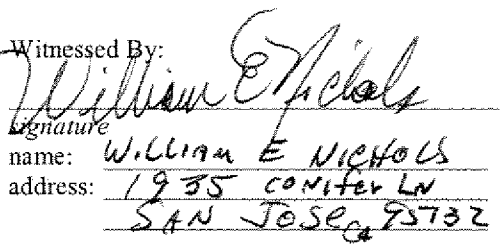 Witnessed By:
William E Nichols
signature
name: William E NICHOLS
address: 1935 CONIFER LN
SAN JOSE Ca 95132